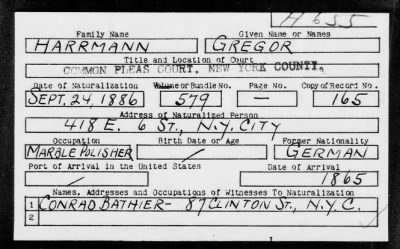 H 655
Family Name Given Name or Names
HARRMANN GREGOR
Title and Location of Court
COMMON PLEAS COURT, NEW YORK COUNTY.
Date of Naturalization Volume or Bundle No. Page No. Copy of Record No.
SEPT. 24, 1886 579 — 165
Address of Naturalized Person
418 E. 6 ST., N.Y. CITY
Occupation Birth Date or Age Former Nationality
MARBLE POLISHER / GERMAN
Port of Arrival in the United States Date of Arrival
/ 1865
Names, Addresses and Occupations of Witnesses To Naturalization
1 CONRAD BATHIER - 87 CLINTON ST., N.Y.C.
2